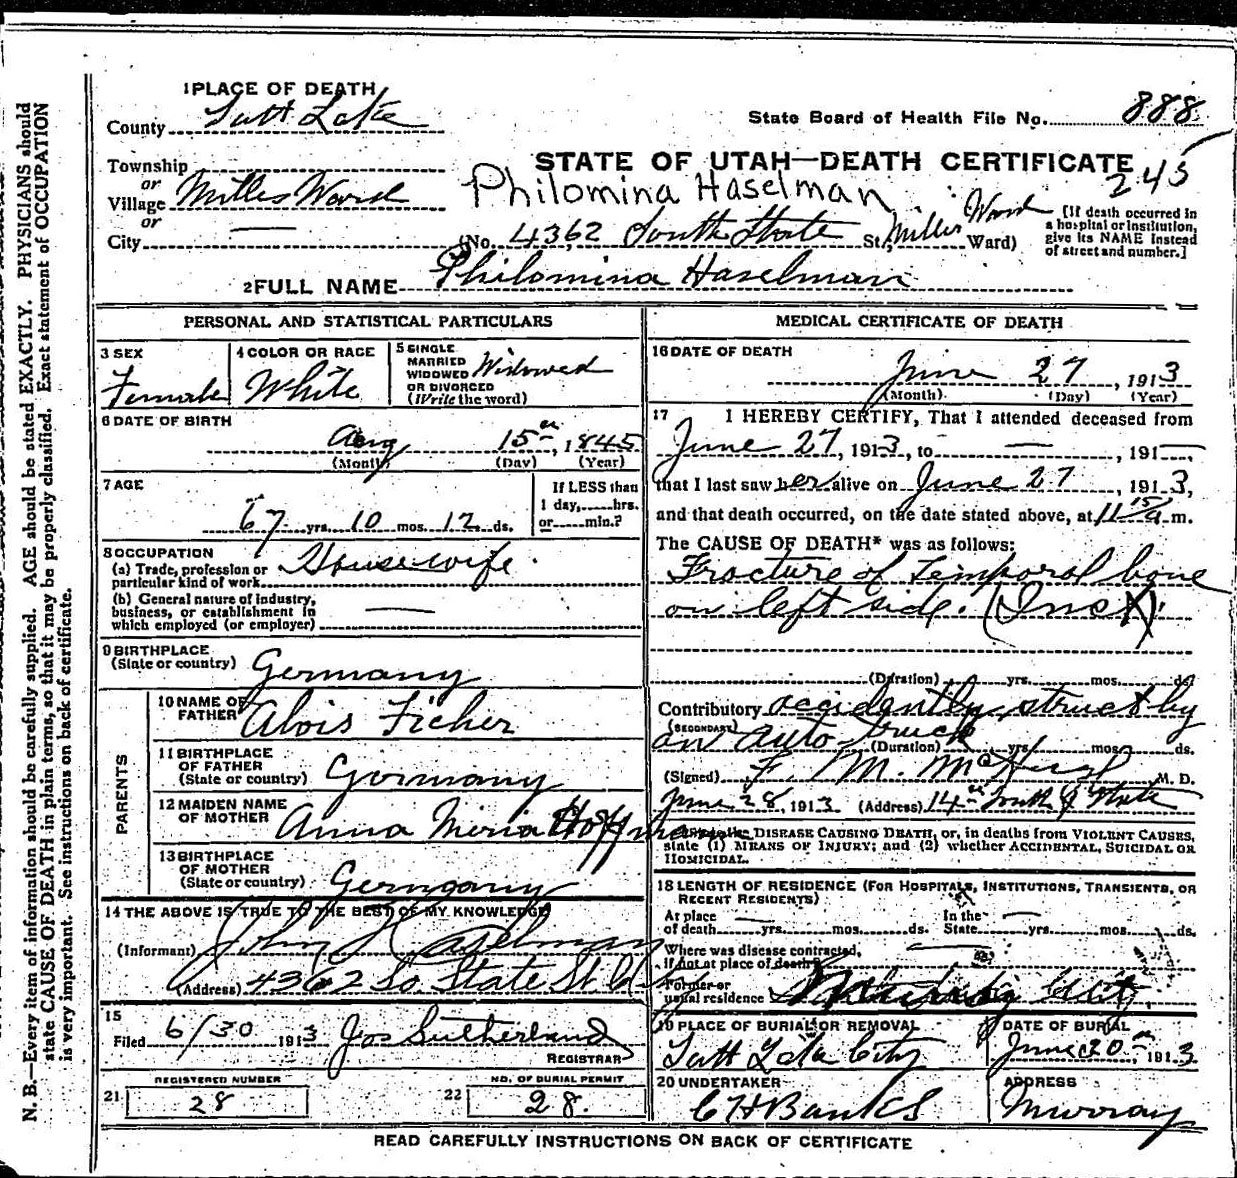 1 PLACE OF DEATH
County Salt Lake
State Board of Health File No. 888
Township
or
Village Millers Ward
or
City —
STATE OF UTAH—DEATH CERTIFICATE
245
Philomina Haselman
(No. 4362 South State St. Miller Ward Ward)
[If death occurred in a hospital or institution, give its NAME instead of street and number.]
2 FULL NAME Philomina Haselman
PERSONAL AND STATISTICAL PARTICULARS
3 SEX
Female
4 COLOR OR RACE
White
5 SINGLE
MARRIED
WIDOWED
OR DIVORCED
(Write the word)
Widowed
6 DATE OF BIRTH
Aug 15th, 1845
(Month) (Day) (Year)
7 AGE
67 yrs. 10 mos. 12 ds.
If LESS than
1 day,......hrs.
or......min.?
8 OCCUPATION
(a) Trade, profession or
particular kind of work Housewife
(b) General nature of industry,
business, or establishment in
which employed (or employer) —
9 BIRTHPLACE
(State or country) Germany
PARENTS
10 NAME OF
FATHER Alois Ficher
11 BIRTHPLACE
OF FATHER
(State or country) Germany
12 MAIDEN NAME
OF MOTHER Anna Meria Hoffman
13 BIRTHPLACE
OF MOTHER
(State or country) Germany
14 THE ABOVE IS TRUE TO THE BEST OF MY KNOWLEDGE
(Informant) John Haselman
(Address) 4362 So State St
15
Filed 6/30 1913 Jos Sutherland
REGISTRAR
REGISTERED NUMBER
21 28
NO. OF BURIAL PERMIT
22 28.
MEDICAL CERTIFICATE OF DEATH
16 DATE OF DEATH
June 27, 1913
(Month) (Day) (Year)
17 I HEREBY CERTIFY, That I attended deceased from
June 27, 1913, to —, 191—,
that I last saw her alive on June 27, 1913,
and that death occurred, on the date stated above, at 11 15 a m.
The CAUSE OF DEATH* was as follows:
Fracture of temporal bone
on left side.
(Duration) yrs. mos. ds.
Contributory accidently struck by
(SECONDARY)
an auto truck
(Duration) yrs. mos. ds.
(Signed) F. M. McHugh M. D.
June 28, 1913 (Address) 14th South & State
DISEASE CAUSING DEATH, or, in deaths from VIOLENT CAUSES,
state (1) MEANS OF INJURY; and (2) whether ACCIDENTAL, SUICIDAL OR
HOMICIDAL.
18 LENGTH OF RESIDENCE (FOR HOSPITALS, INSTITUTIONS, TRANSIENTS, OR
RECENT RESIDENTS)
At place
of death — yrs. mos. ds.
In the
State — yrs. mos. ds.
Where was disease contracted,
if not at place of death?
Former or
usual residence
19 PLACE OF BURIAL OR REMOVAL
Salt Lake City
DATE OF BURIAL
June 30th, 1913
20 UNDERTAKER
C H Banks
ADDRESS
Murray
READ CAREFULLY INSTRUCTIONS ON BACK OF CERTIFICATE
N. B.—Every item of information should be carefully supplied. AGE should be stated EXACTLY. PHYSICIANS should
state CAUSE OF DEATH in plain terms, so that it may be properly classified. Exact statement of OCCUPATION
is very important. See instructions on back of certificate.